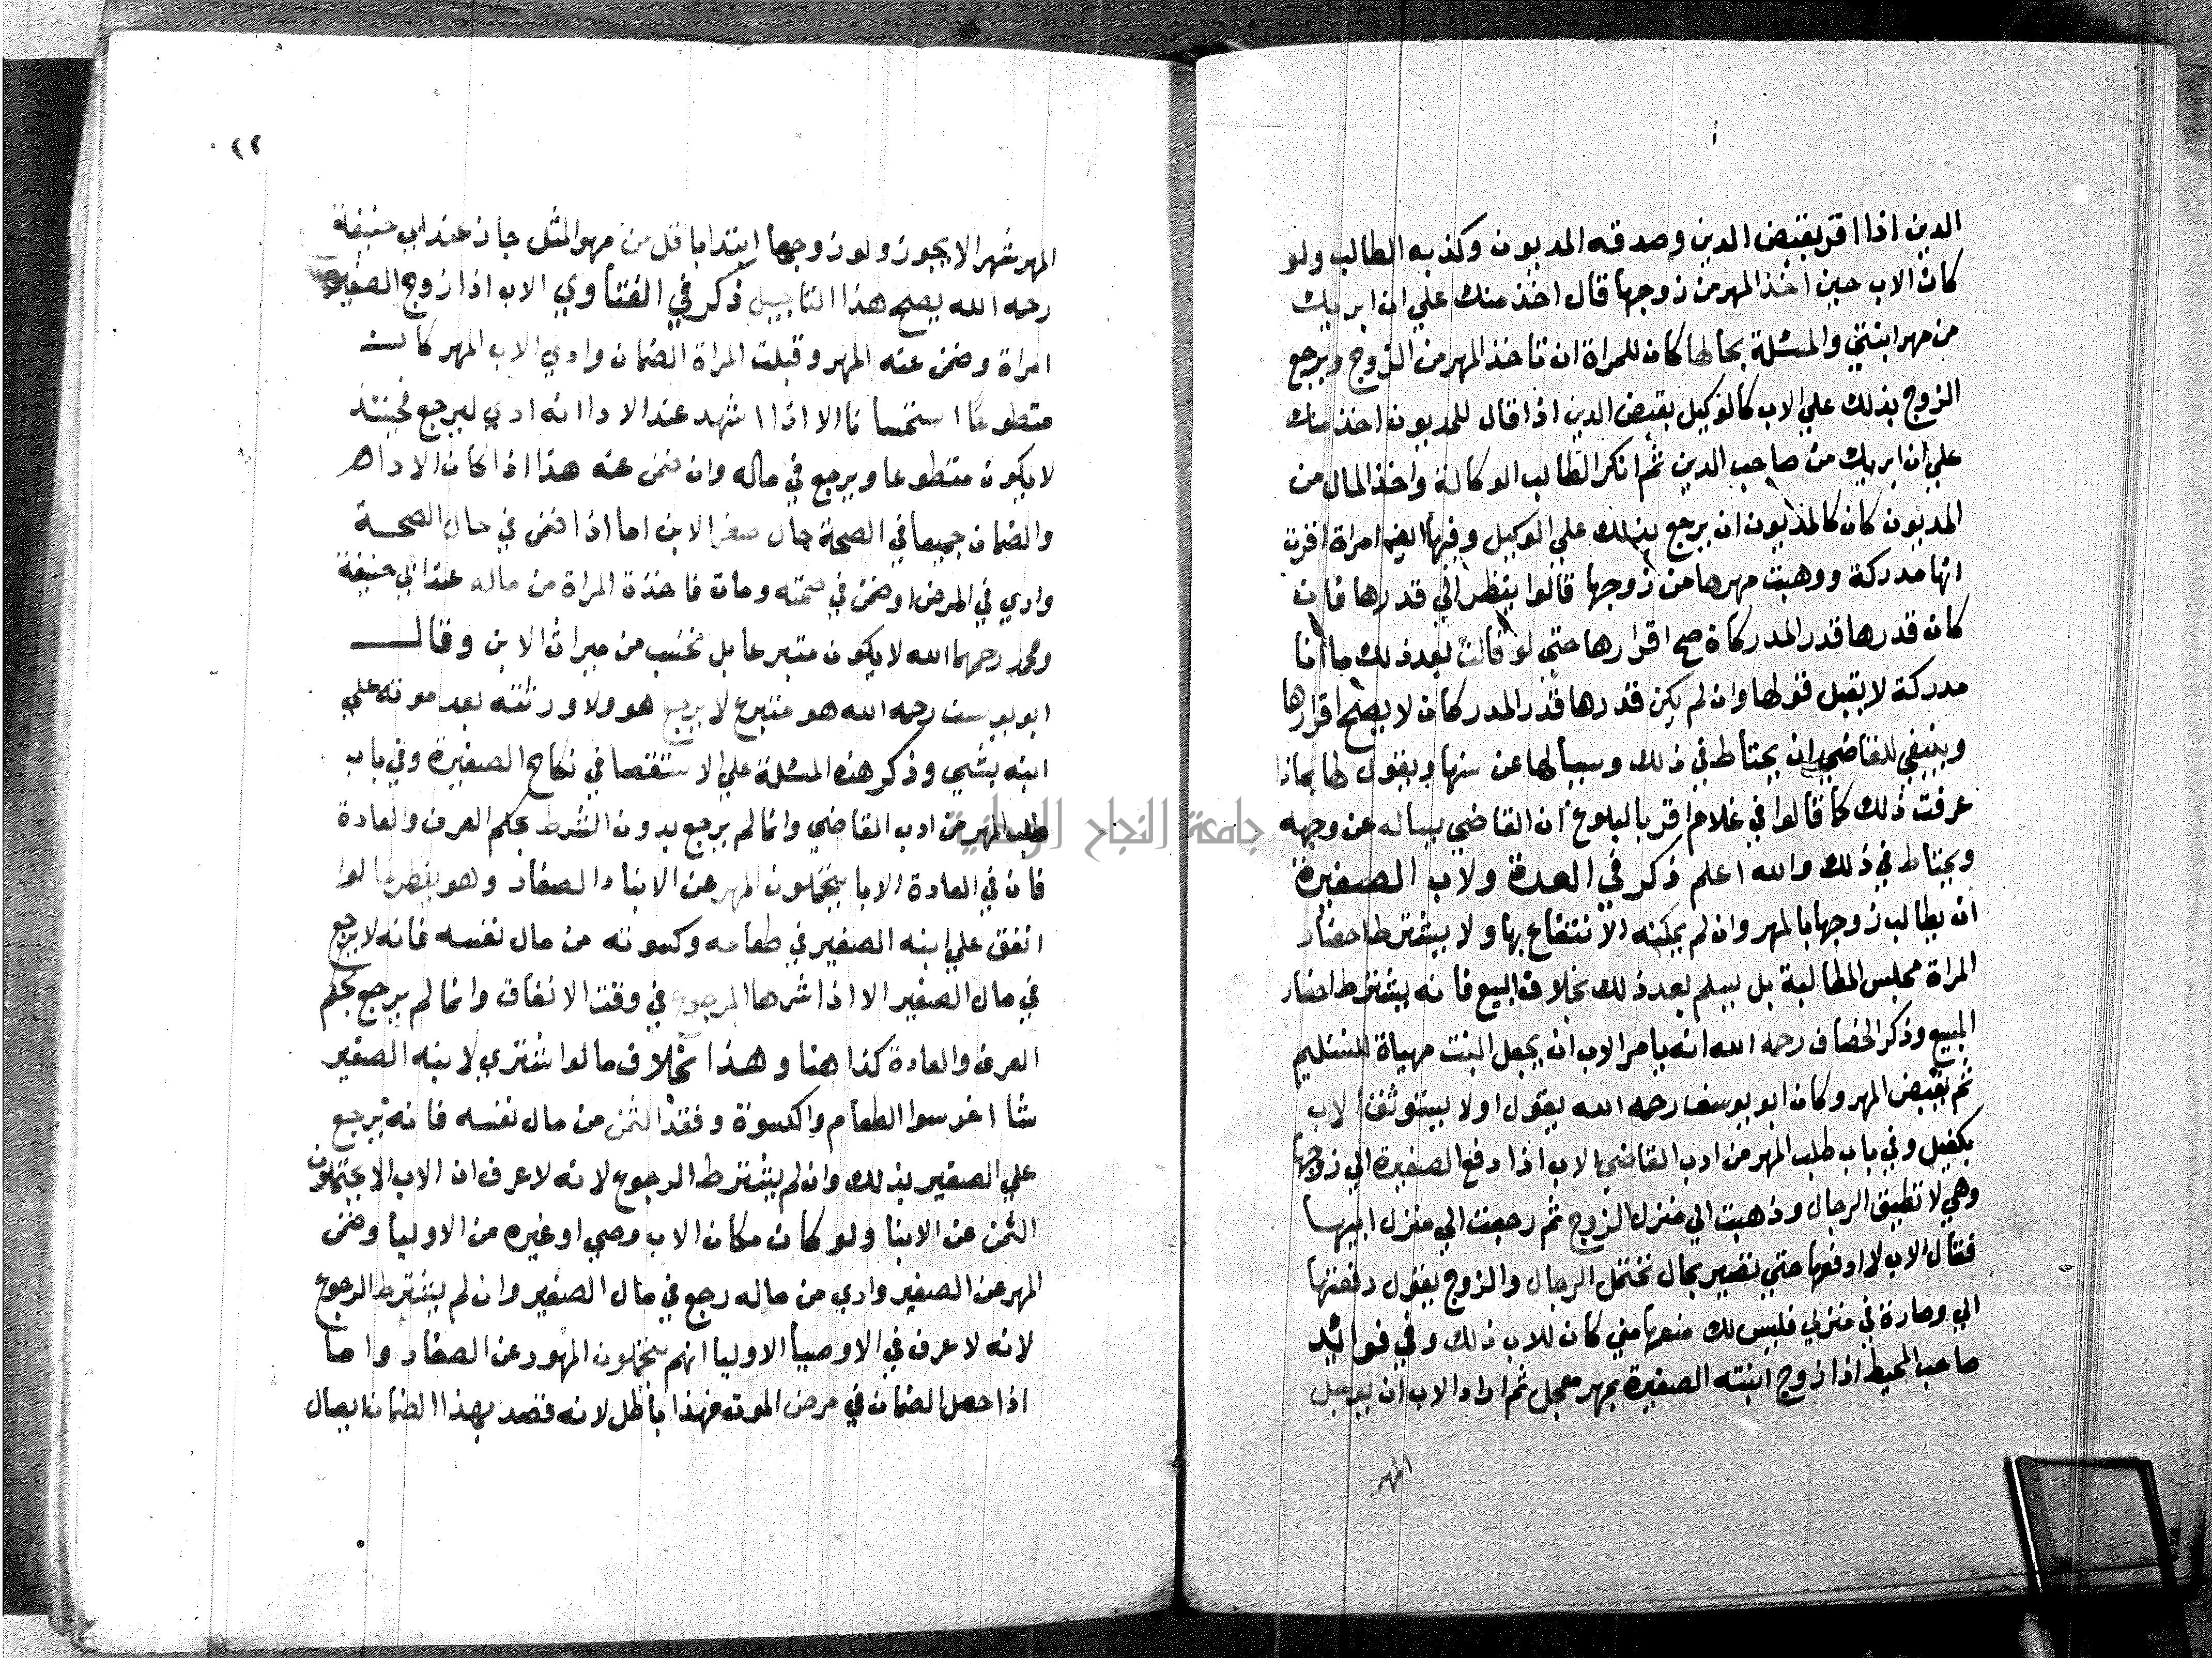 الدين اذا اقر بقبض الدين وصدقه المديون وكذبه الطالب ولو
كان الاب حين اخذ المهر من زوجها قال اخذ منك علي ان ابريك
من مهر ابنتي والمسئلة بحالها كان للمراة ان تاخذ المهر من الزوج ويرجع
الزوج بذلك علي الاب كالوكيل بقبض الدين اذا قال للمديون اخذ منك
علي ان ابريك من صاحب الدين ثم انكر الطالب الوكالة واخذ المال من
المديون كان كالمديون ان يرجع بذلك علي الوكيل وفيها ايضا امراة اقرت
انها مدركة ووهبت مهرها من زوجها قالوا ينظر الي قدرها فان
كان قدرها قدر المدركاة صح اقرارها حتي لو قالت بعد ذلك ما انا
مدركة لا يقبل قولها وان لم يكن قدرها قدر المدركات لا يصح اقرارها
وينبغي للقاضي ان يحتاط في ذلك ويسالها عن سنها ويقول لها بماذا
عرفت ذلك كما قالوا في غلام اقر بالبلوغ ان القاضي يساله عن وجهه
ويحتاط في ذلك والله اعلم ذكر في العدة ولاب الصغيرة
ان يطالب زوجها بالمهر وان لم يمكنه الانتفاع بها ولا يشترط احضار
المراة مجلس المطالبة بل يسلم بعد ذلك بخلاف البيع فانه يشترط احضار
المبيع وذكر الخصاف رحمه الله انه يامر الاب ان يجعل البنت مهياة للتسليم
ثم يقبض المهر وكان ابو يوسف رحمه الله يقول اولا يستوثق الاب
بكفيل وفي باب طلب المهر من ادب القاضي الاب اذا دفع الصغيرة الي زوجها
وهي لا تطيق الرجال وذهبت الي منزل الزوج ثم رجعت الي منزل ابيها
فقال الاب لا ادفعها حتي تصير بحال تحتمل الرجال والزوج يقول دفعتها
الي وصارة في منزلي فليس لك منعها مني كان للاب ذلك وفي فوائد
صاحب المحيط اذا زوج ابنته الصغيرة بمهر معجل ثم اراد الاب ان يوجل
المهر
٤٢
المهر شهر الا يجوز ولو زوجها ابتدا باقل من مهر المثل جاز عند ابي حنيفة
رحمه الله يصح هذا التاجيل ذكر في الفتاوي الاب اذا زوج الصغير
امراة وضمن عنه المهر وقبلت المراة الضمان وادي الاب المهر كان
متطوعا استحسانا الا اذا اشهد عند الادا انه ادي ليرجع فحينئذ
لا يكون متطوعا ويرجع في ماله وان ضمن عنه هذا اذا كان الاداء
والضمان جميعا في الصحة حال صغر الابن اما اذا ضمن في حال الصحة
وادي في المرض او ضمن في صحته ومات فاخذة المراة من ماله عند ابي حنيفة
ومحمد رحمهما الله لا يكون متبرعا بل تحتسب من ميراث الابن وقال
ابو يوسف رحمه الله هو متبرع لا يرجع هو ولا ورثته بعد موته علي
ابنه بشي وذكر هذه المسئلة علي الاستقصا في نكاح الصغيرة وفي باب
طلب المهر من ادب القاضي وانما لم يرجع بدون الشرط بحكم العرف والعادة
فان في العادة الابا يتحملون المهر عن الابناء الصغار وهو نظير ما لوا
انفق علي ابنه الصغير في طعامه وكسوته من مال نفسه فانه لا يرجع
في مال الصغير الا اذا شرها المرجوع في وقت الانفاق وانما لم يرجع بحكم
العرف والعادة كذا هنا وهذا بخلاف ما لوا شتري لابنه الصغير
شا اخر سوا الطعام والكسوة وفقد الثمن من مال نفسه فانه يرجع
علي الصغير بذلك وان لم يشترط الرجوع لانه لا عرف ان الاب الا يحتملون
الثمن عن الابنا ولو كان مكان الاب وصي او غيره من الاوليا وضمن
المهر عن الصغير وادي من ماله رجع في مال الصغير وان لم يشترط الرجوع
لانه لا عرف في الاوصيا الاوليا انهم يتحملون المهور عن الصغار واما
اذا حصل الضمان في مرض الموت فهذا باطل لانه قصد بهذا الضمان ايصال
جامعة النجاح الوطنية